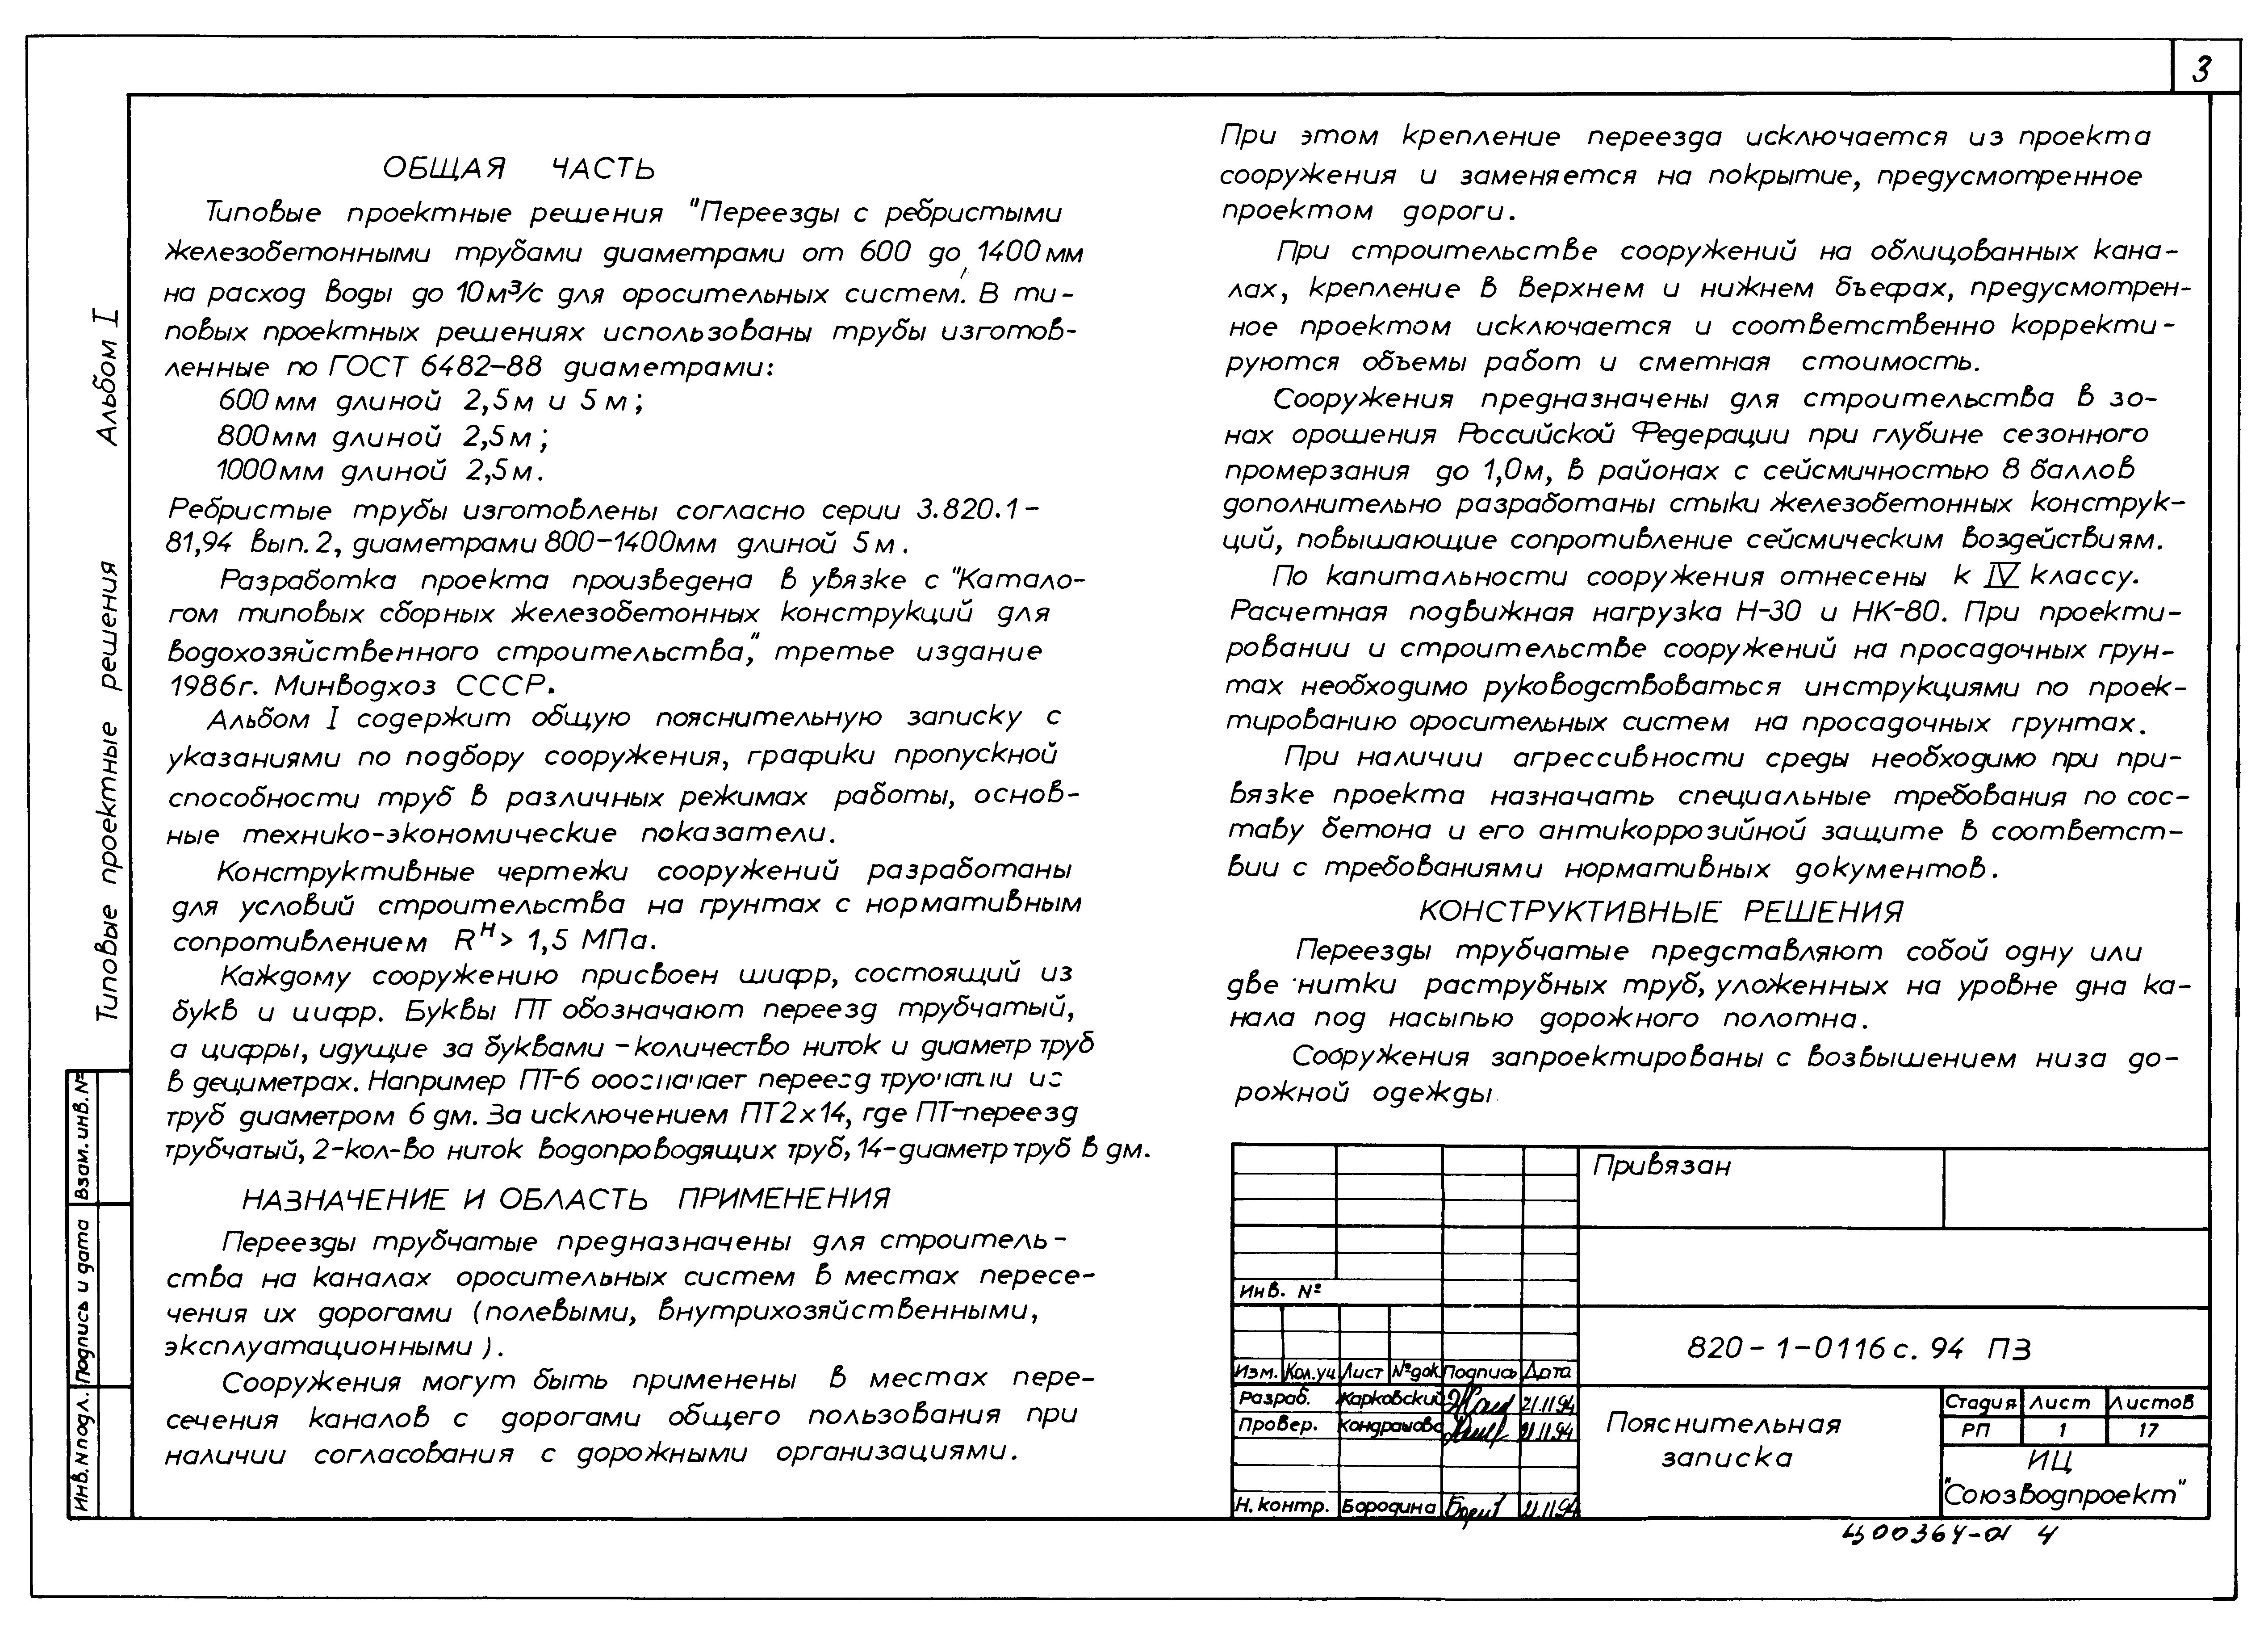 3
ОБЩАЯ ЧАСТЬ
Типовые проектные решения "Переезды с ребристыми
железобетонными трубами диаметрами от 600 до 1400 мм
на расход воды до 10 м³/с для оросительных систем. В ти-
повых проектных решениях использованы трубы изготов-
ленные по ГОСТ 6482-88 диаметрами:
600 мм длиной 2,5 м и 5 м;
800 мм длиной 2,5 м;
1000 мм длиной 2,5 м.
Ребристые трубы изготовлены согласно серии 3.820.1-
81,94 вып. 2, диаметрами 800-1400мм длиной 5 м.
Разработка проекта произведена в увязке с "Катало-
гом типовых сборных железобетонных конструкций для
водохозяйственного строительства", третье издание
1986г. Минводхоз СССР.
Альбом I содержит общую пояснительную записку с
указаниями по подбору сооружения, графики пропускной
способности труб в различных режимах работы, основ-
ные технико-экономические показатели.
Конструктивные чертежи сооружений разработаны
для условий строительства на грунтах с нормативным
сопротивлением Rᴴ > 1,5 МПа.
Каждому сооружению присвоен шифр, состоящий из
букв и цифр. Буквы ПТ обозначают переезд трубчатый,
а цифры, идущие за буквами - количество ниток и диаметр труб
в дециметрах. Например ПТ-6 обозначает переезд трубчатый из
труб диаметром 6 дм. За исключением ПТ2х14, где ПТ-переезд
трубчатый, 2-кол-во ниток водопроводящих труб, 14-диаметр труб в дм.
НАЗНАЧЕНИЕ И ОБЛАСТЬ ПРИМЕНЕНИЯ
Переезды трубчатые предназначены для строитель-
ства на каналах оросительных систем в местах пересе-
чения их дорогами (полевыми, внутрихозяйственными,
эксплуатационными).
Сооружения могут быть применены в местах пере-
сечения каналов с дорогами общего пользования при
наличии согласования с дорожными организациями.
При этом крепление переезда исключается из проекта
сооружения и заменяется на покрытие, предусмотренное
проектом дороги.
При строительстве сооружений на облицованных кана-
лах, крепление в верхнем и нижнем бьефах, предусмотрен-
ное проектом исключается и соответственно корректи-
руются объемы работ и сметная стоимость.
Сооружения предназначены для строительства в зо-
нах орошения Российской Федерации при глубине сезонного
промерзания до 1,0м, в районах с сейсмичностью 8 баллов
дополнительно разработаны стыки железобетонных конструк-
ций, повышающие сопротивление сейсмическим воздействиям.
По капитальности сооружения отнесены к IV классу.
Расчетная подвижная нагрузка Н-30 и НК-80. При проекти-
ровании и строительстве сооружений на просадочных грун-
тах необходимо руководствоваться инструкциями по проек-
тированию оросительных систем на просадочных грунтах.
При наличии агрессивности среды необходимо при при-
вязке проекта назначать специальные требования по сос-
таву бетона и его антикоррозийной защите в соответст-
вии с требованиями нормативных документов.
КОНСТРУКТИВНЫЕ РЕШЕНИЯ
Переезды трубчатые представляют собой одну или
две нитки раструбных труб, уложенных на уровне дна ка-
нала под насыпью дорожного полотна.
Сооружения запроектированы с возвышением низа до-
рожной одежды
Типовые проектные решения Альбом I
Взам. инв. №
Подпись и дата
Инв. N подл.
Привязан
Инв. №
Изм. Кол.уч Лист № док Подпись Дата
Разраб. Карковский 21.11.94
Провер. Кондрашова 21.11.94
Н. контр. Бородина 21.11.94
820-1-0116 с. 94 ПЗ
Пояснительная
записка
Стадия Лист Листов
РП 1 17
ИЦ
"Союзводпроект"
Ц00364-01 4